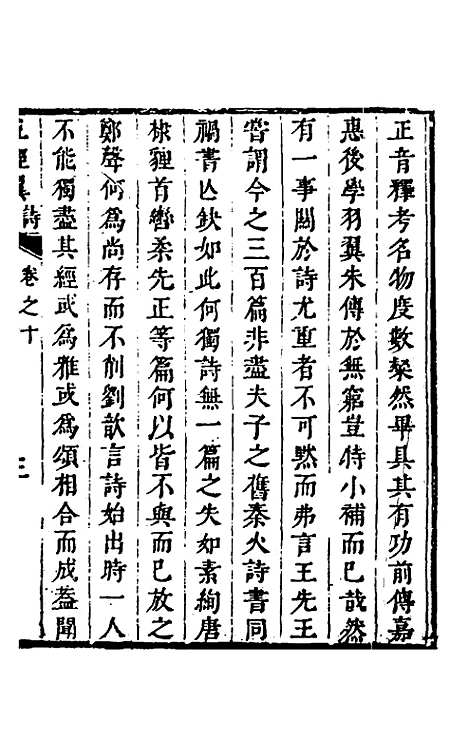 正音釋考名物度數粲然畢具其有功前傳嘉
惠後學羽翼朱傳於無窮豈侍小補而已哉然
有一事關於詩尤重者不可黙而弗言王先王
嘗謂今之三百篇非盡夫子之舊秦火詩書同
禍書亾缺如此何獨詩無一篇之失如素絢唐
棣貍首轡柔先正等篇何以皆不與而已放之
鄭聲何爲尚存而不削劉歆言詩始出時一人
不能獨盡其經或爲雅或爲頌相合而成葢聞
五經翼詩 卷之十 三